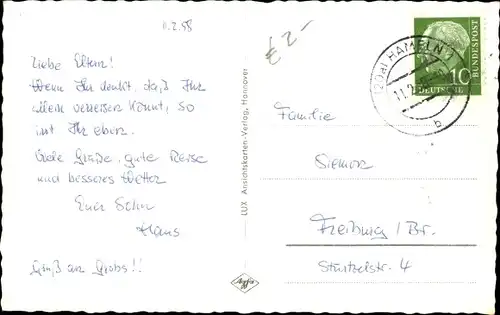 11.2.58
£ 2-
Liebe Eltern!
Wenn Ihr denkt, daß Ihr
allein verreisen könnt, so
irrt Ihr eben.
Viele Grüße, gute Reise
und besseres Wetter
Euer Sohn
Klaus
Gruß an Grobs!!
LUX Ansichtskarten-Verlag, Hannover
Agfa
(20a) HAMELN
11.2.58
b
10
DEUTSCHE
BUNDESPOST
Familie
Siemon
Freiburg / Br.
Stürtzelstr. 4